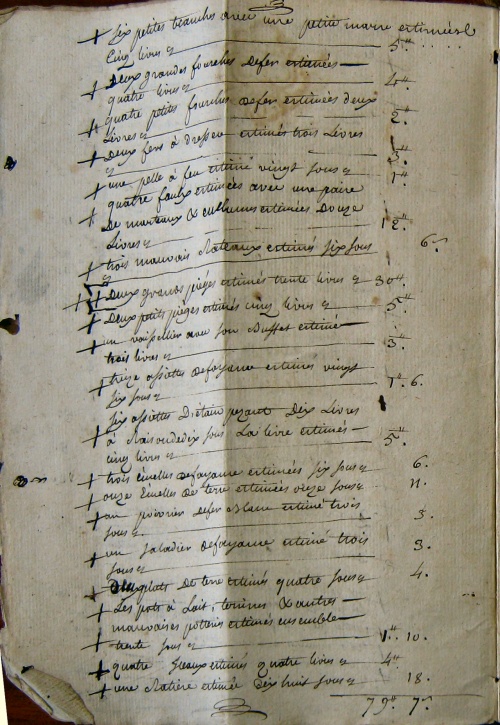 + Six petites tranches avec une petite marre estimées
Cinq livres 5"
+ Deux grandes fourches defer estimées
quatre livres 4"
+ quatre petites fourches defer estimées deux
Livres 2"
+ Deux fers à dresser estimés trois Livres
3"
+ une pelle à feu estimé vingt sous 1"
+ quatre faulx estimées avec une paire
De marteaux & enclumes estimées Douze
Livres 12"
+ trois mauvais Rateaux estimés six sous 6
+ Deux grands pièges estimés trente livres 30"
+ Deux petits pièges estimés cinq livres 5"
+ un vaissellier avec son Buffet estimé
trois livres 3"
+ treize assiettes defayance estimés vingt
six sous 1" 6.
Six assiettes D'étain pezant Dix Livres
+ à Raison dedix sous La livre estimés
cinq livres 5"
+ trois Écuelles defayance estimées six sous 6.
+ onze Écuelles de terre estimées onze sous 11.
+ un poivrier defer Blanc estimé trois
sous 3.
+ un saladier defayance estimé trois
sous 3.
+ plats De terre estimés quatre sous 4.
+ Les pots à Lait, terrines & autres
mauvaises poteries estimés ensemble
+ trente sous 1" 10.
+ quatre Seaux estimés quatre livres 4"
+ une Ratière estimée Dix huit sous 18.
79" 7